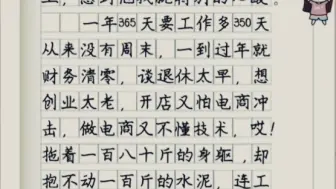 一年365天要工作多350天
从来没有周末，一到过年就
财务溃零，谈退休太早，想
创业太老，开店又怕电商冲
击，做电商又不懂技术，哎！
拖着一百八十斤的身躯，却
抱不动一百斤的水泥，连工